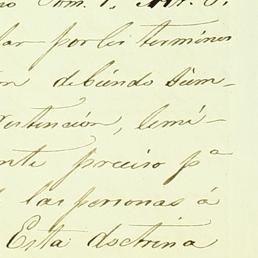 no Tom. 1, Art. 5.
lar por los términos
on debiendo sum-
ostención, lemi-
nte preciso pª
las personas á
Esta doctrina